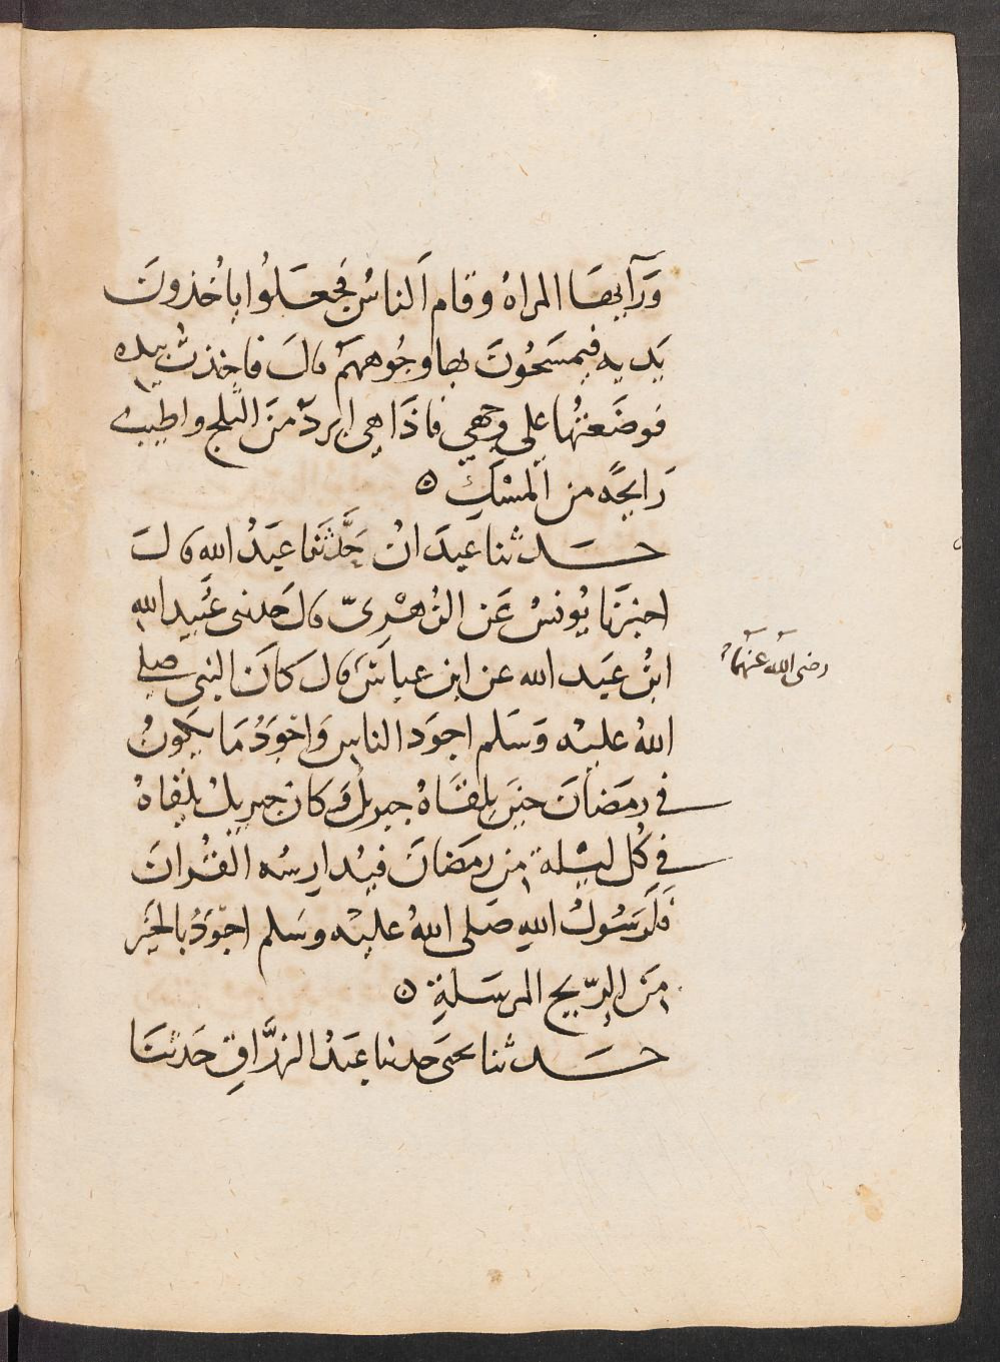 وَرَآيِهَا المراهُ وقام الناسُ فجَعَلوُا ياخُذونَ
يَديه فيمسَحُونَ بها وجُوههمْ قالَ فاخذتُ بيده
فوضَعتُها على وجهي فاذَا هي ابردُ منَ الثلج واطيبُ
رَايحةً من المسْكِ ه
حدثنا عبدَانُ حَدَّثنَا عبَدُ الله قالَ
اخبَرَنا يُونسُ عَن الزُهْرِيّ قال حدثنى عُبَيدُ الله
ابنُ عَبد الله عن ابن عباسَ قال كانَ النبي صلى
رضى الله عنهما
اللهُ عليْه وَسَلم اجوَد الناسِ وَاجْوَدُ مَا يكونُ
في رمَضانَ حينَ يلقَاهُ جبريلُ وَكانَ جبريلُ يلقاهُ
في كُل ليْلة من رمَضانَ فيُدارسُه القُرانَ
فلَرَسُولُ اللهِ صَلى اللهُ عليْه وسَلم اجوَدُ بالخيَر
منَ الرّيح المرسَلةِ ه
حدثنا يحيَى حدثنا عبَدُ الرزَّاقِ حَدثنَا